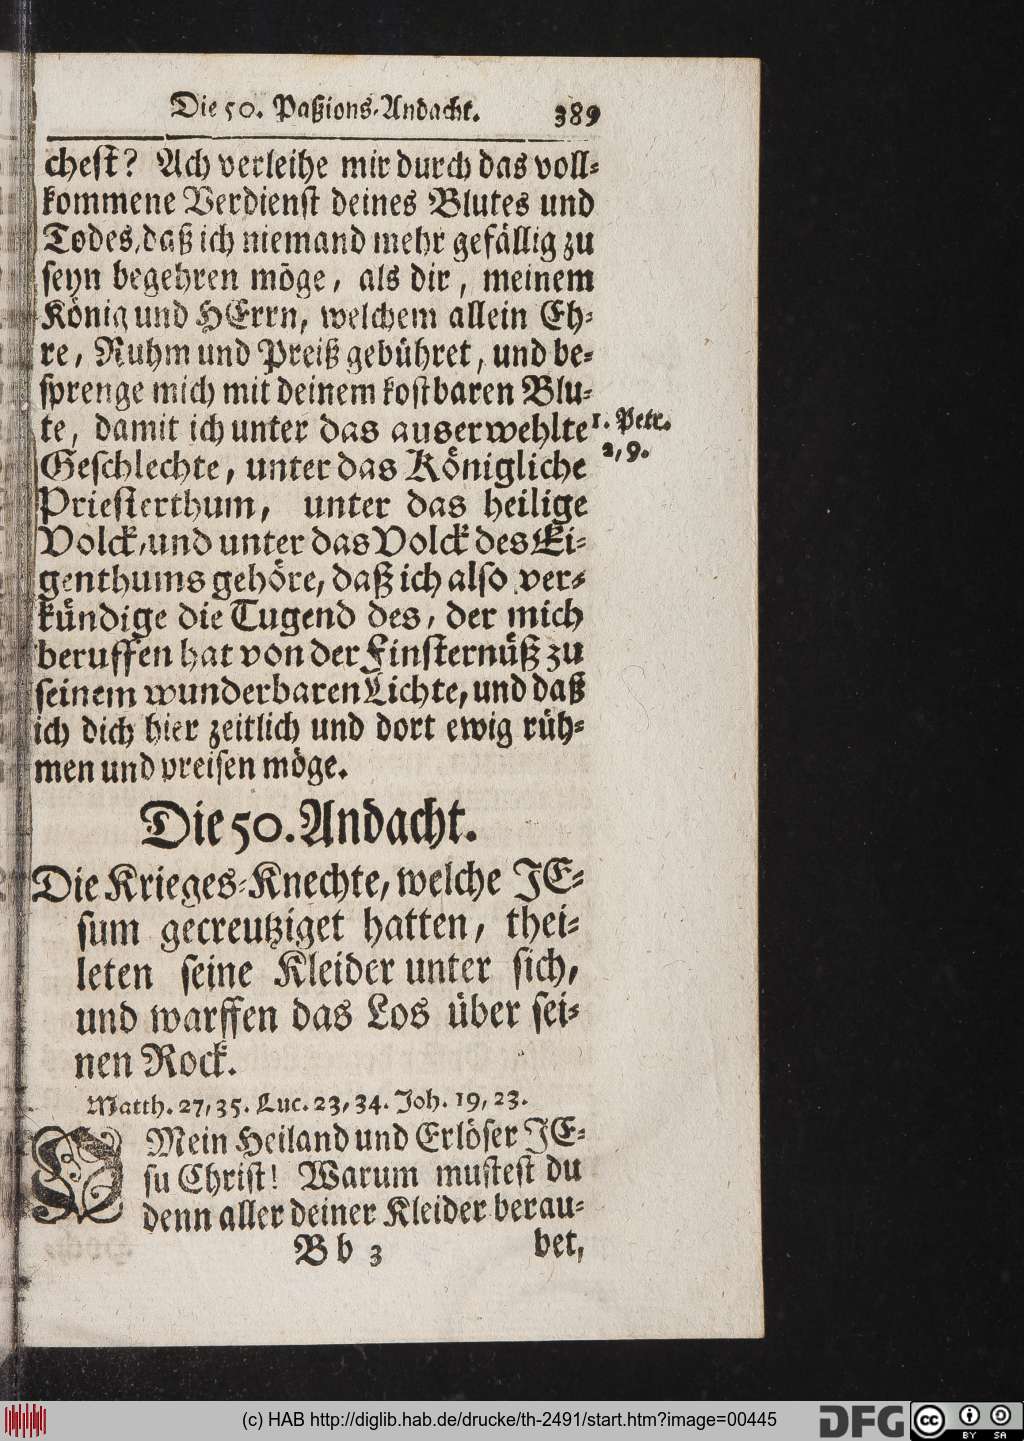 Die 50. Paßions-Andacht. 389
chest? Ach verleihe mir durch das voll-
kommene Verdienst deines Blutes und
Todes, daß ich niemand mehr gefällig zu
seyn begehren möge, als dir, meinem
König und HErrn, welchem allein Eh-
re, Ruhm und Preiß gebühret, und be-
sprenge mich mit deinem kostbaren Blu-
te, damit ich unter das auserwehlte
1. Petr.
2, 9.
Geschlechte, unter das Königliche
Priesterthum, unter das heilige
Volck, und unter das Volck des Ei-
genthums gehöre, daß ich also ver-
kündige die Tugend des, der mich
beruffen hat von der Finsternüß zu
seinem wunderbaren Lichte, und daß
ich dich hier zeitlich und dort ewig rüh-
men und preisen möge.
Die 50. Andacht.
Die Krieges-Knechte, welche JE-
sum gecreutziget hatten, thei-
leten seine Kleider unter sich,
und warffen das Los über sei-
nen Rock.
Matth. 27, 35. Luc. 23, 34. Joh. 19, 23.
O Mein Heiland und Erlöser JE-
su Christ! Warum mustest du
denn aller deiner Kleider berau-
B b 3 bet,
(c) HAB http://diglib.hab.de/drucke/th-2491/start.htm?image=00445
DFG cc BY SA